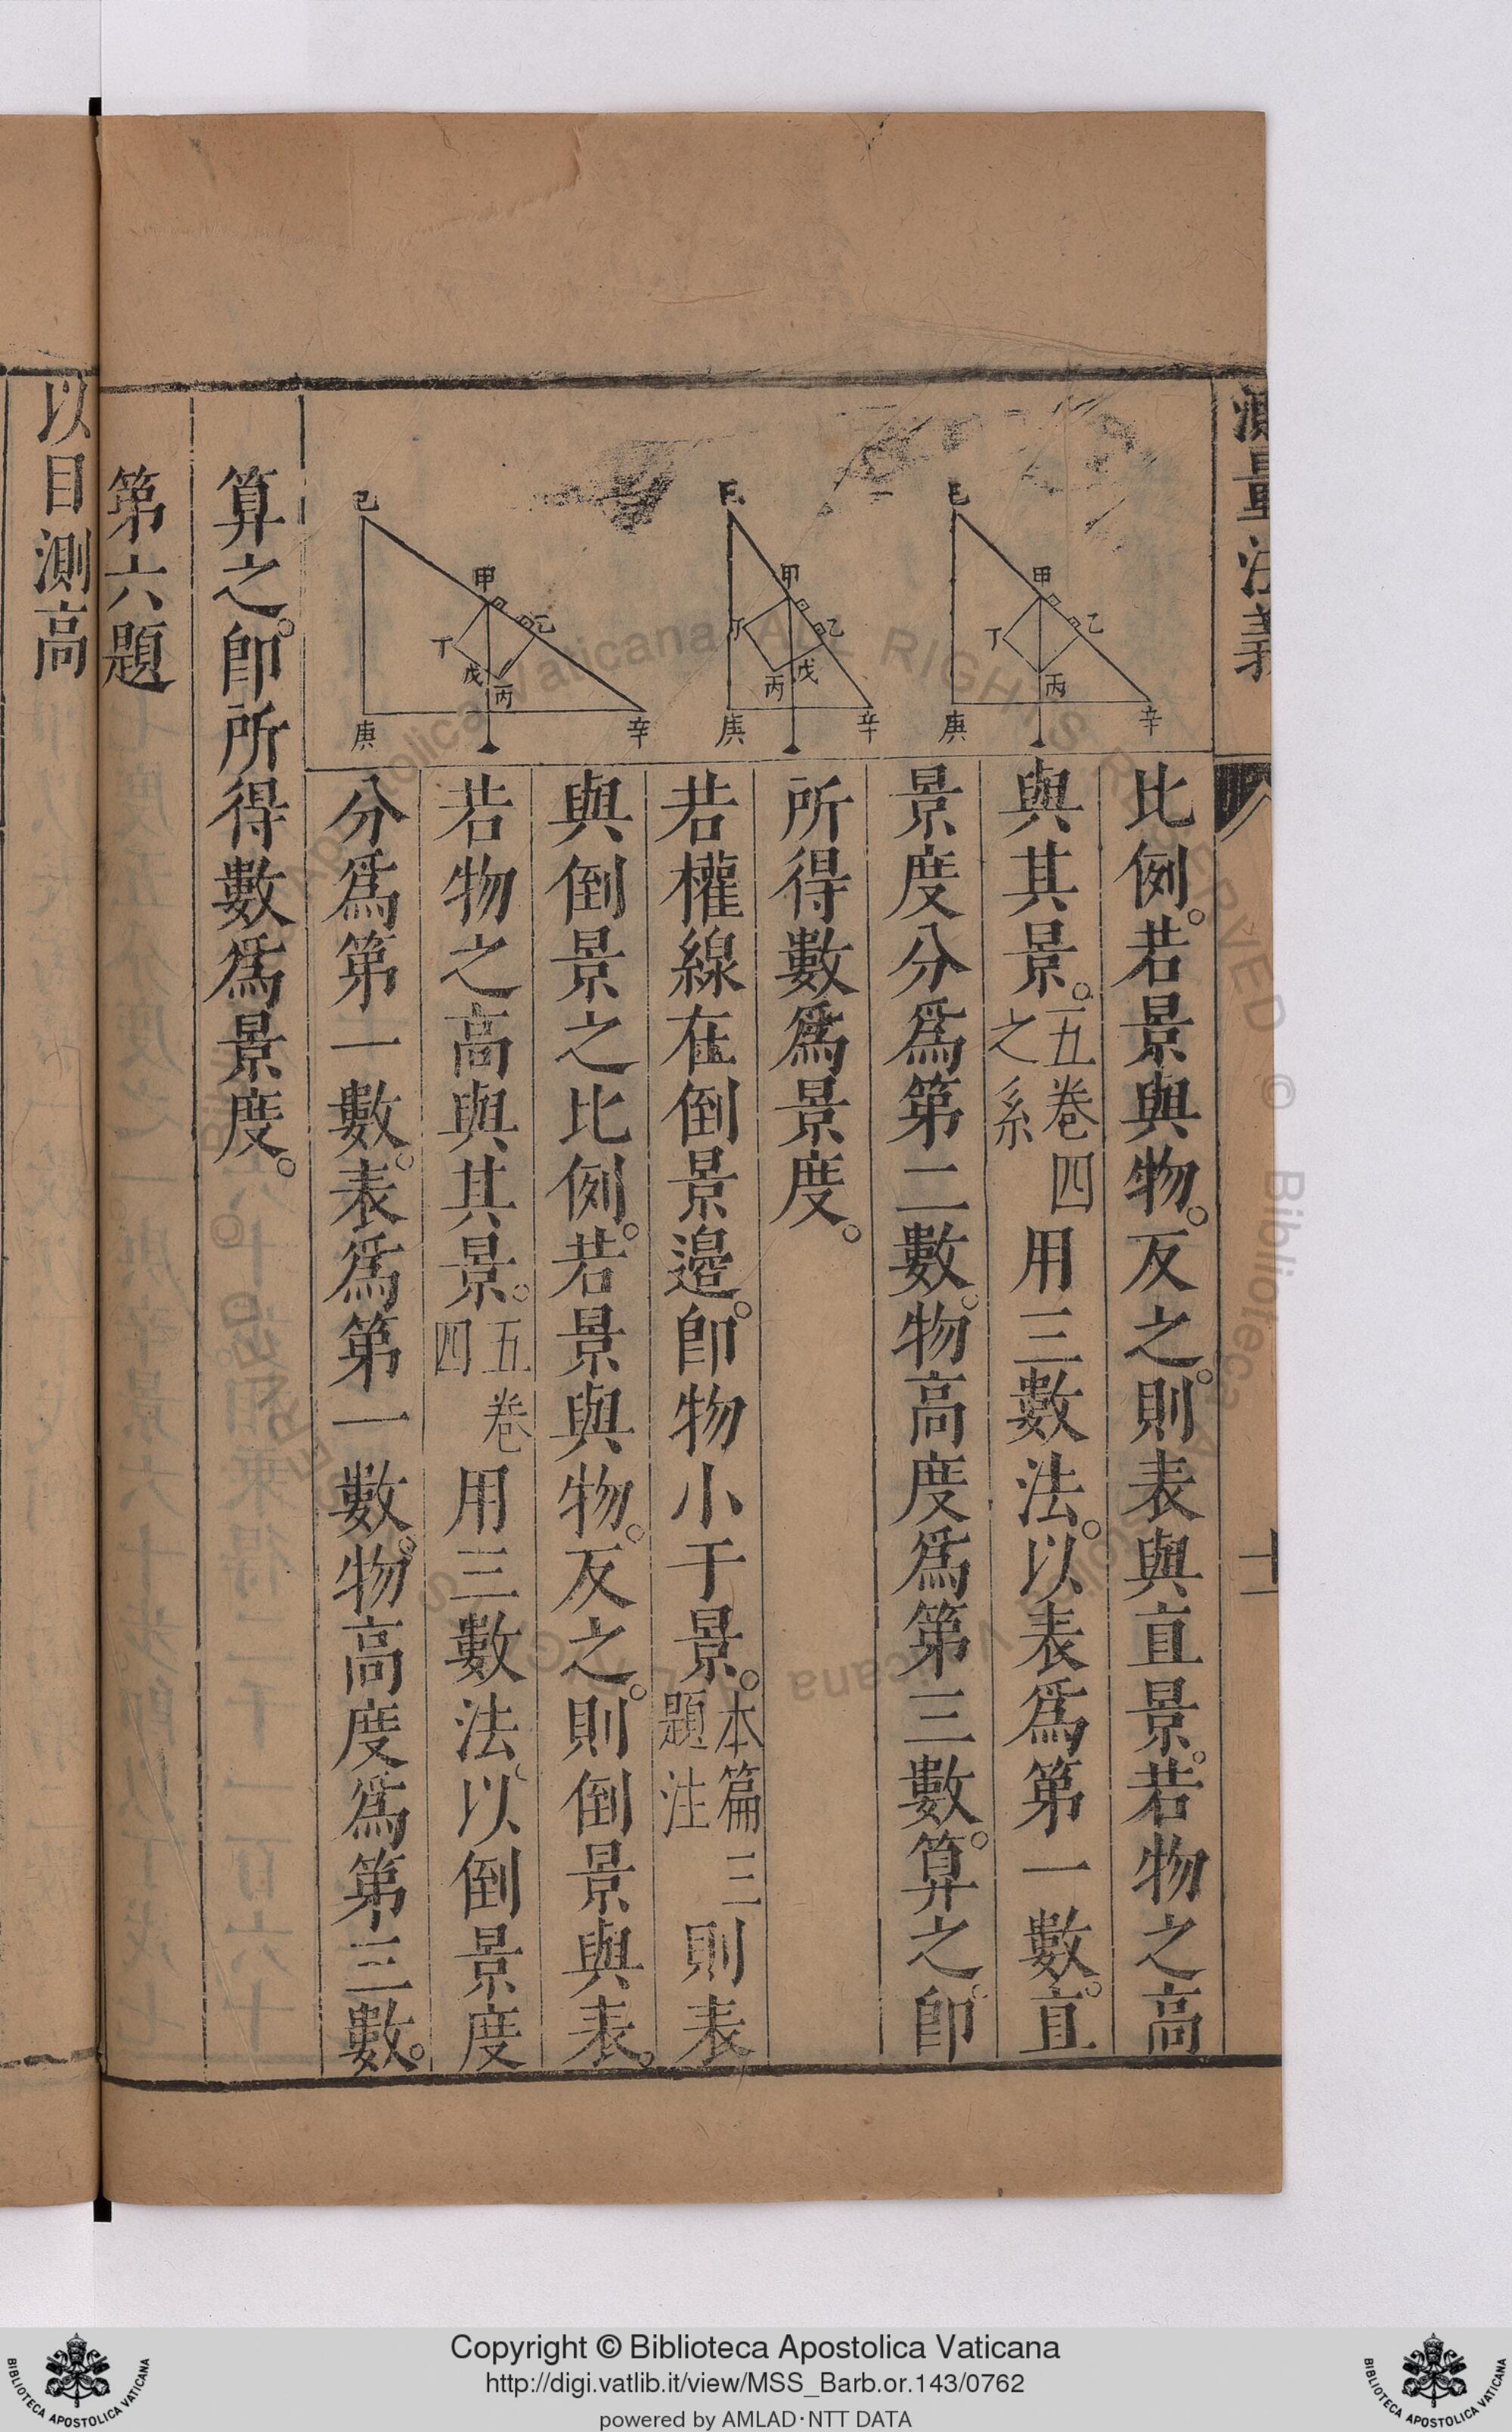 測量法義
十一
比例。若景與物。反之。則表與直景。若物之高
與其景。五卷四之系用三數法。以表爲第一數。直
景度分爲第二數。物高度爲第三數。算之。卽
所得數爲景度。
若權線在倒景邉。卽物小于景。本篇三題注則表
與倒景之比例。若景與物。反之。則倒景與表。
若物之高與其景。五卷四用三數法。以倒景度
分爲第一數。表爲第一數。物高度爲第三數。
算之。卽所得數爲景度。
第六題
以目測高
己
甲
乙
丁
丙
庚
辛
甲
乙
丁
戊
丙
庚
辛
己
甲
乙
丁
戊
丙
庚
辛
Copyright © Biblioteca Apostolica Vaticana
http://digi.vatlib.it/view/MSS_Barb.or.143/0762
powered by AMLAD·NTT DATA
BIBLIOTECA APOSTOLICA VATICANA
BIBLIOTECA APOSTOLICA VATICANA